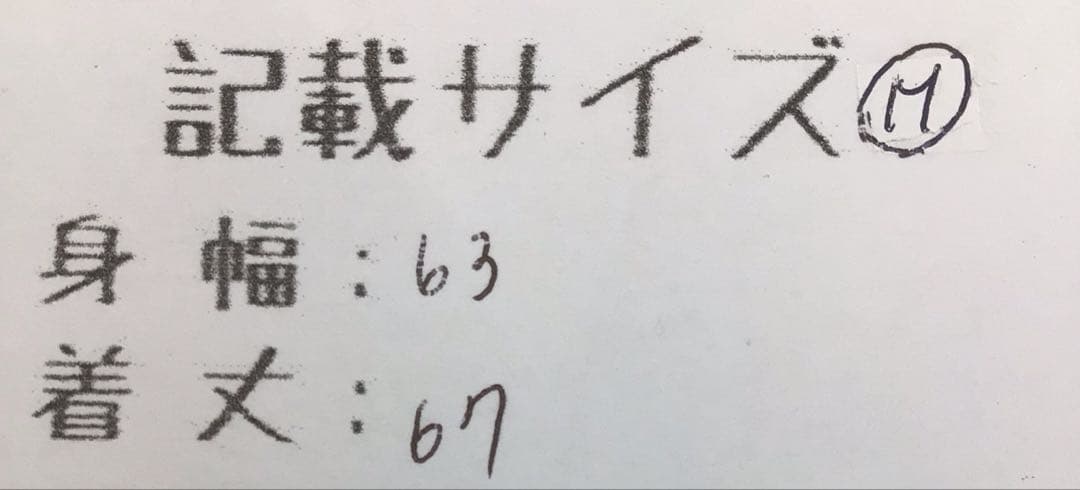 記載サイズ Ⓜ
身幅:63
着丈:67